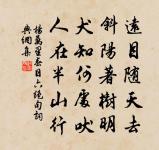 遠目隨天去
斜陽著樹明
犬知何處吠
人在半山行
楊萬里春日六絕句詞
典網集